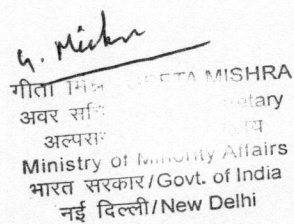 G. Mishra
गीता मिश्र GEETA MISHRA
अवर
Ministry of Minority Affairs
भारत सरकार/Govt. of India
नई दिल्ली/New Delhi